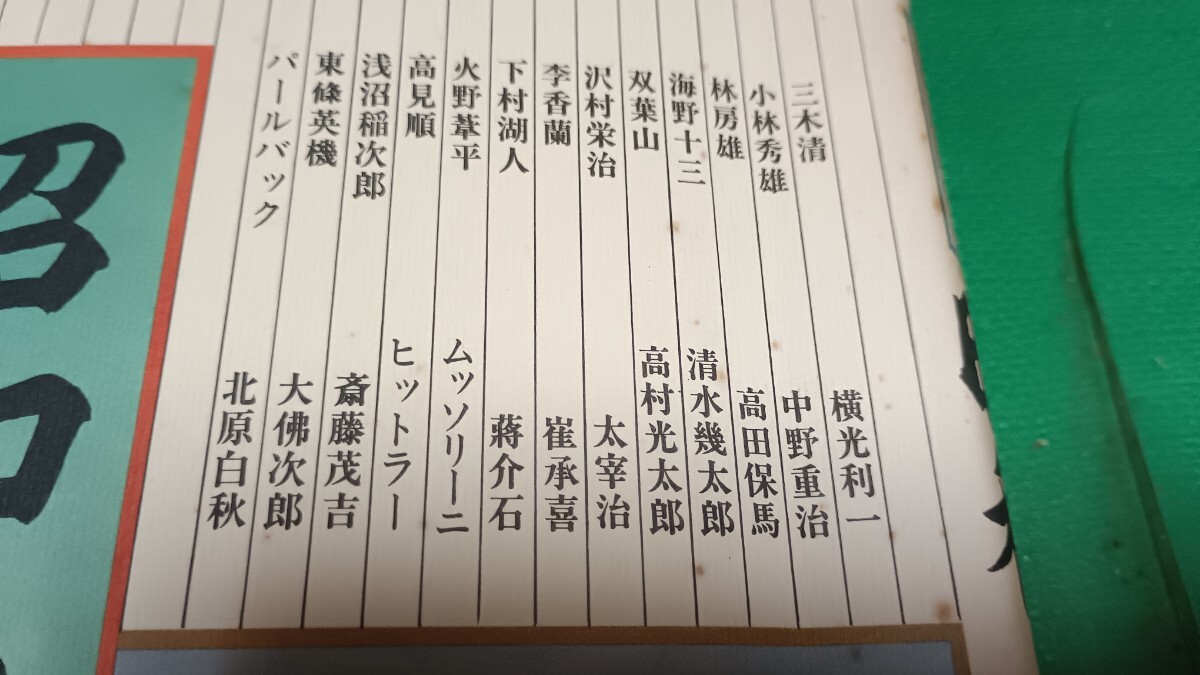 三木清
小林秀雄
林房雄
海野十三
双葉山
沢村栄治
李香蘭
下村湖人
火野葦平
高見順
浅沼稲次郎
東條英機
パールバック
横光利一
中野重治
高田保馬
清水幾太郎
高村光太郎
太宰治
崔承喜
蔣介石
ムッソリーニ
ヒットラー
斎藤茂吉
大佛次郎
北原白秋